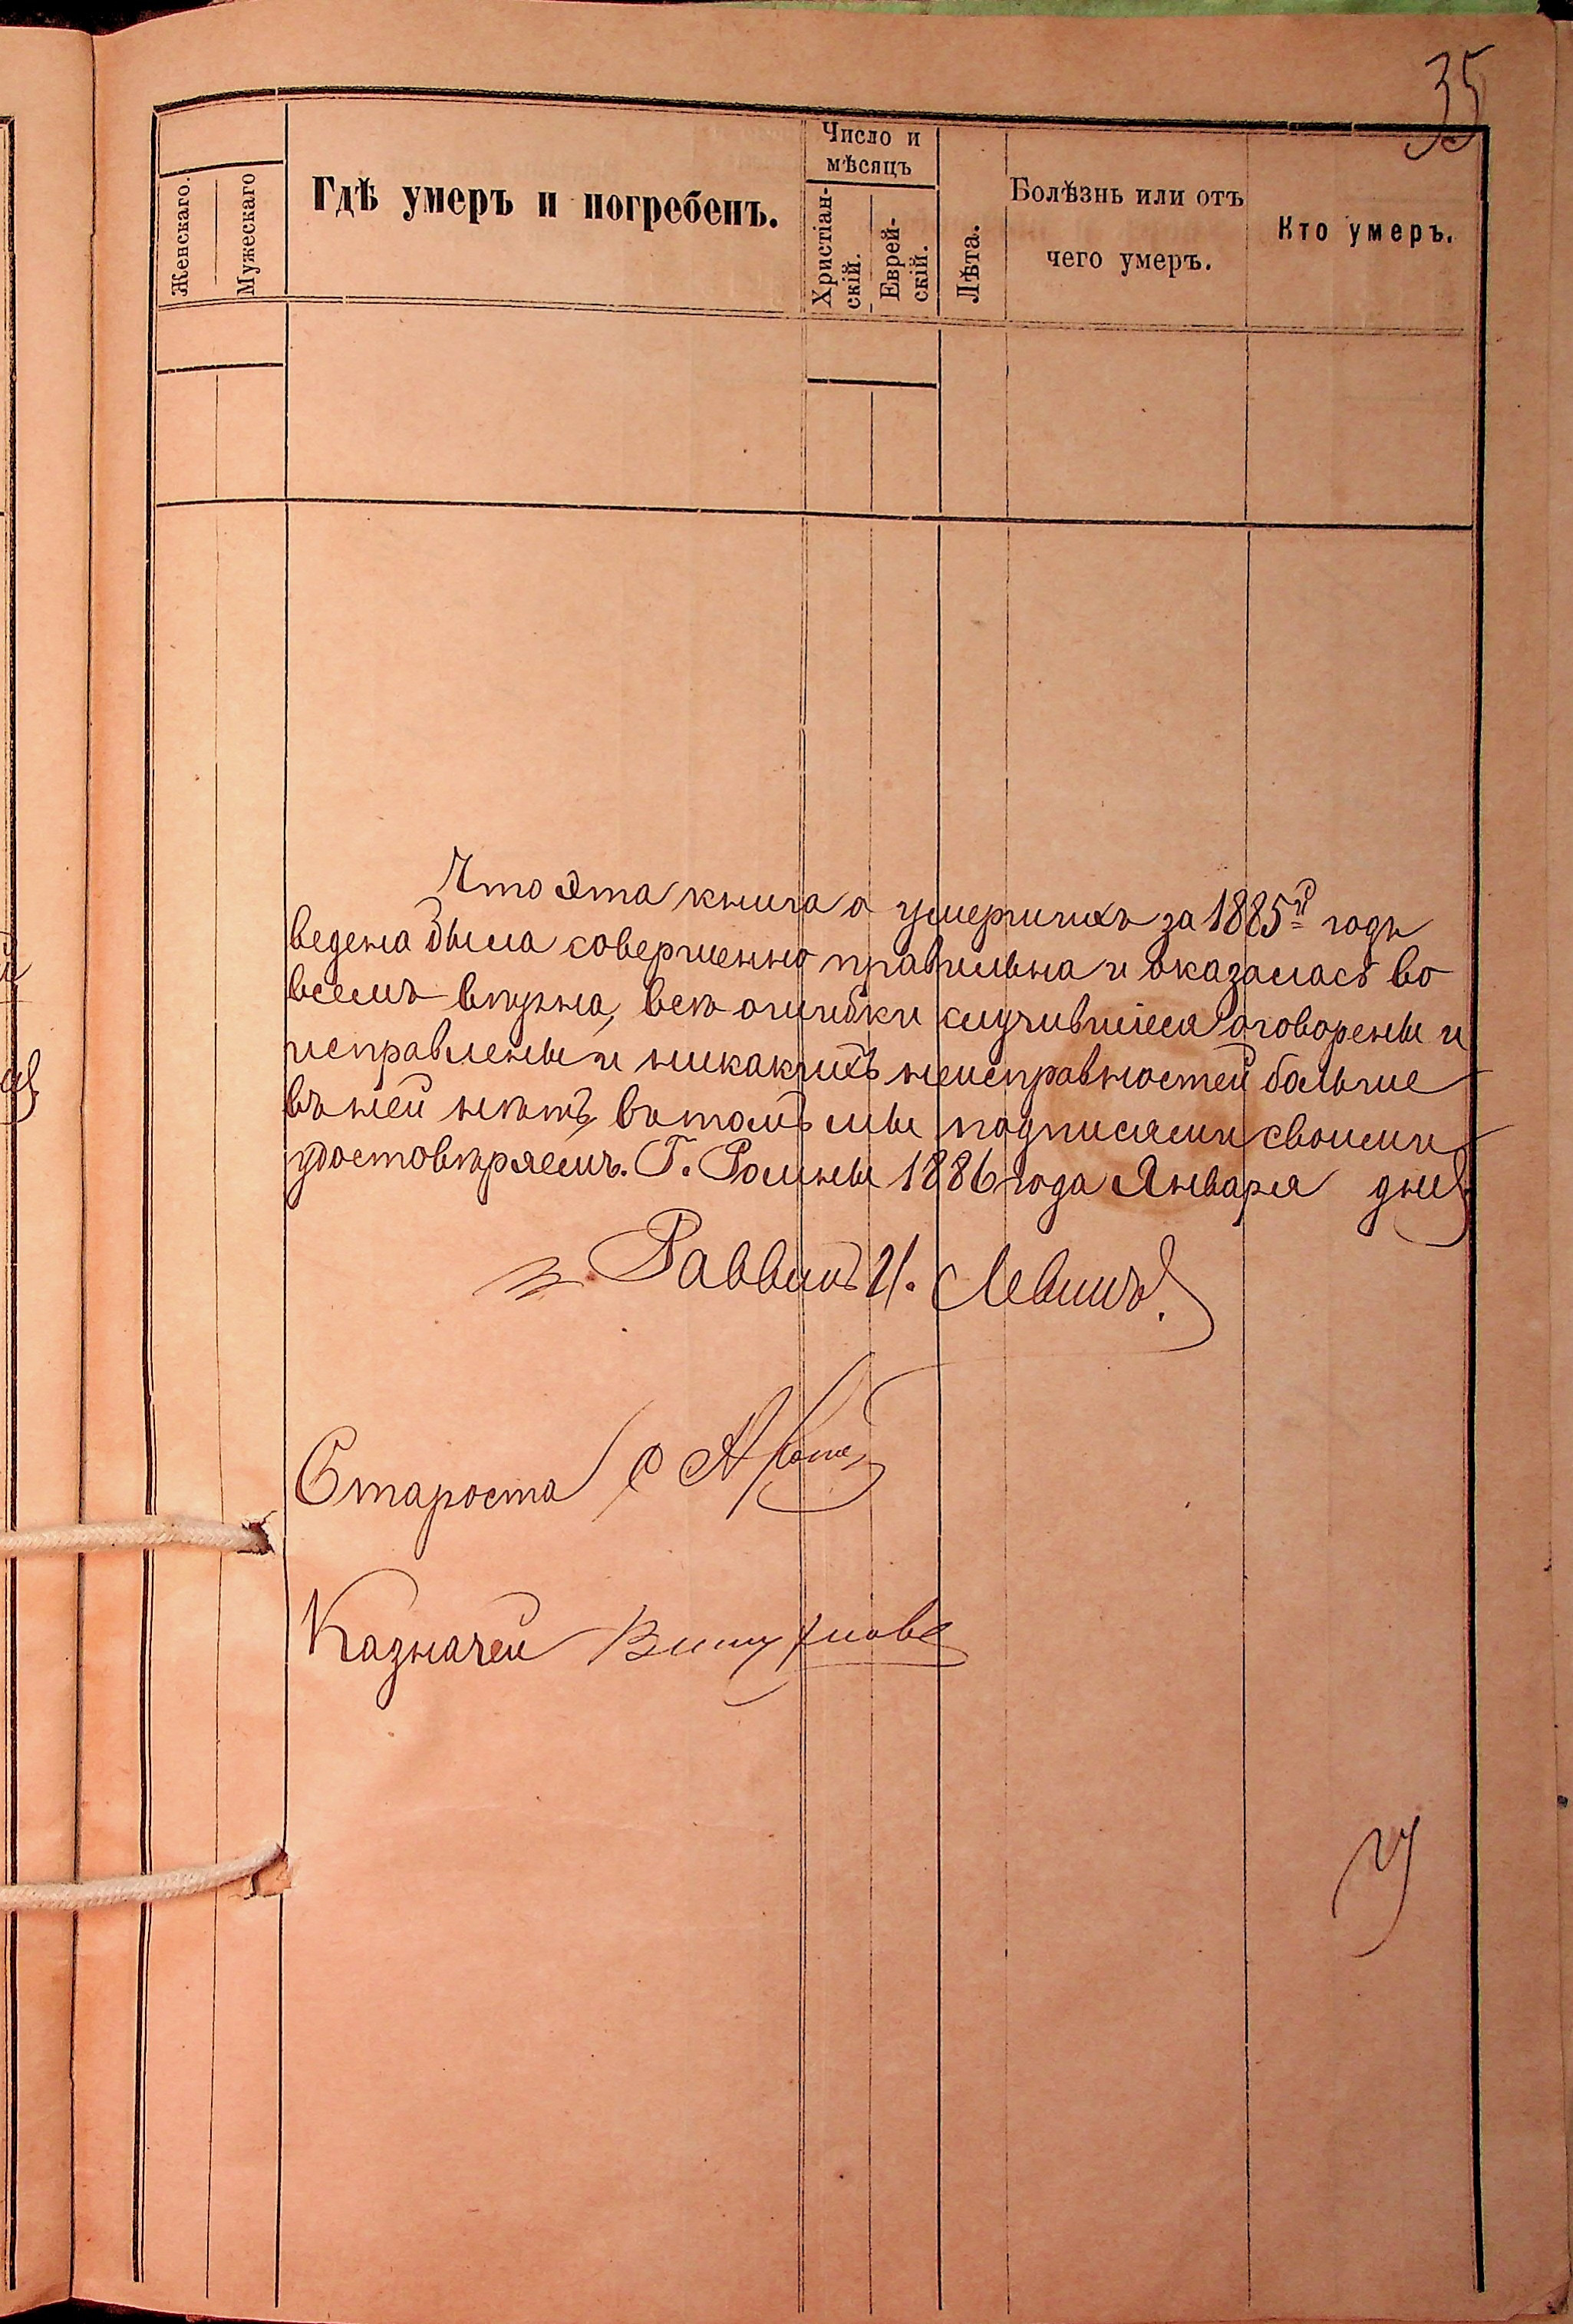 35
Женскаго.
Мужескаго
Гдѣ умеръ и погребенъ.
Число и
мѣсяцъ
Христіан-
скій.
Еврей-
скій.
Лѣта.
Болѣзнь или отъ
чего умеръ.
Кто умеръ.
Что эта книга о умершихъ за 1885й годъ
ведена была совершенно правильна и оказалась во
всемъ вѣрна, всѣ ошибки случившіеся оговорены и
исправлены и никакихъ неисправностей больше
въ ней нѣтъ, въ томъ мы подписями своими
удостовѣряемъ. Г. Ромны 1886 года Января дня
Раввинъ И. Левинъ.
Староста
Казначей